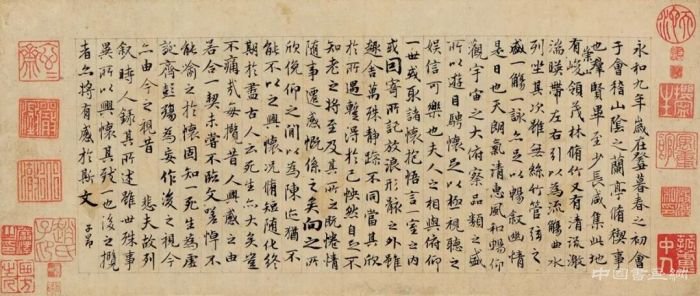 永和九年歲在癸丑暮春之初會
于會稽山陰之蘭亭脩稧事
也羣賢畢至少長咸集此地
有崇山峻領茂林脩竹又有清流激
湍暎帶左右引以為流觴曲水
列坐其次雖無絲竹管弦之
盛一觴一詠亦足以暢叙幽情
是日也天朗氣清惠風和暢仰
觀宇宙之大俯察品類之盛
所以遊目騁懷足以極視聽之
娛信可樂也夫人之相與俯仰
一世或取諸懷抱悟言一室之內
或因寄所託放浪形骸之外雖
趣舍萬殊靜躁不同當其欣
於所遇蹔得於己怏然自足不
知老之將至及其所之既惓情
隨事遷感慨係之矣向之所
欣俛仰之間以為陳迹猶不
能不以之興懷況脩短隨化終
期於盡古人云死生亦大矣豈
不痛哉每攬昔人興感之由
若合一契未嘗不臨文嗟悼不
能喻之於懷固知一死生為虛
誕齊彭殤為妄作後之視今
亦由今之視昔 悲夫故列
叙時人錄其所述雖世殊事
異所以興懷其致一也後之攬
者亦將有感於斯文
子昂